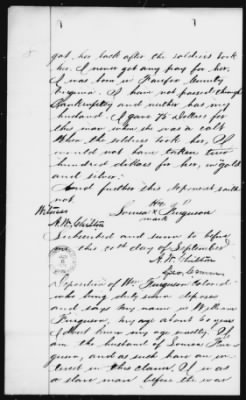 got her back after the soldiers took
her. I never got any pay for her.
I was born in Fairfax County
Virginia. I have not passed through
Bankruptcy and neither has my
husband. I gave 75 Dollars for
this mare when she was a colt
When the soldiers took her, I
would not have taken two
hundred dollars for her, in gold
and silver.
And further this deponent saith
not.
Witness
Louisa X Ferguson
mark
A. W. Chilton
Subscribed and sworn to before
me this 20th day of September
A. W. Chilton
Deposition of Wm Ferguson Colored
who being duly sworn deposes
and says My name is William
Ferguson, my age about 60 years
I dont know my age exactly. I am
the husband of Louisa Fer-
guson, and as such have an in-
terest in this claim. I was
a slave man before the war